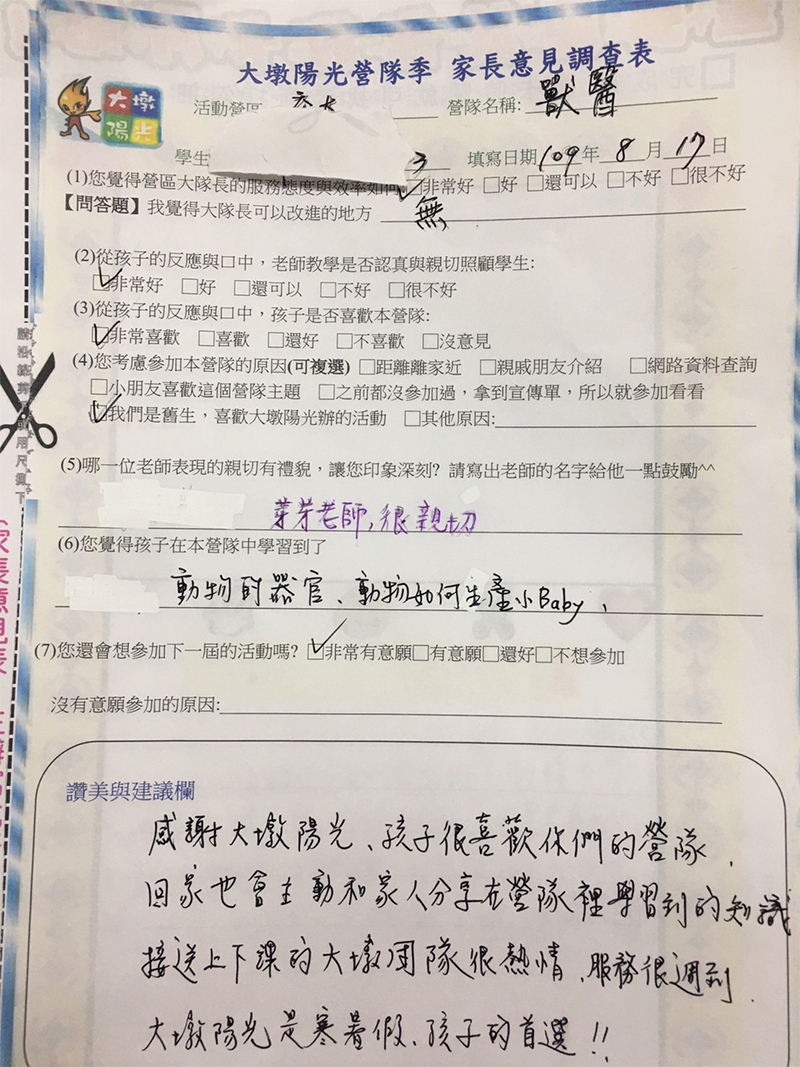 大墩陽光營隊季 家長意見調查表
大墩
陽光
活動營區
營隊名稱: 獸醫
學生
填寫日期109年8月17日
(1)您覺得營區大隊長的服務態度與效率如何 ☑非常好 □好 □還可以 □不好 □很不好
【問答題】我覺得大隊長可以改進的地方 無
(2)從孩子的反應與口中，老師教學是否認真與親切照顧學生:
☑非常好 □好 □還可以 □不好 □很不好
(3)從孩子的反應與口中，孩子是否喜歡本營隊:
☑非常喜歡 □喜歡 □還好 □不喜歡 □沒意見
(4)您考慮參加本營隊的原因(可複選) □距離離家近 □親戚朋友介紹 □網路資料查詢
□小朋友喜歡這個營隊主題 □之前都沒參加過，拿到宣傳單，所以就參加看看
☑我們是舊生，喜歡大墩陽光辦的活動 □其他原因:
(5)哪一位老師表現的親切有禮貌，讓您印象深刻? 請寫出老師的名字給他一點鼓勵^^
芽芽老師,很親切
(6)您覺得孩子在本營隊中學習到了
動物的器官、動物如何生產小Baby、
(7)您還會想參加下一屆的活動嗎? ☑非常有意願□有意願□還好□不想參加
沒有意願參加的原因:
讚美與建議欄
感謝大墩陽光、孩子很喜歡你們的營隊、
回家也會主動和家人分享在營隊裡學習到的知識
接送上下課的大墩團隊很熱情、服務很週到
大墩陽光是寒暑假、孩子的首選!!